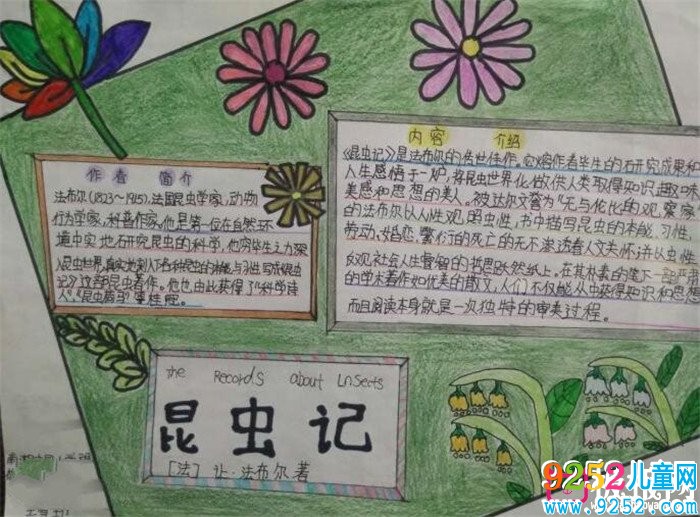 作者 简介
法布尔(1823～1915),法国昆虫学家,动物
行为学家,科普作家,他是第一位在自然环
境中实地研究昆虫的科学,他穷毕生之力深
入昆虫世界,真实地
记》这部昆虫著作。他也由此获得了“科学诗
人”《昆虫 桂冠。
内容 介绍
《昆虫记》是法布尔的传世佳作。它熔作者毕生的石研究成果和
人生感悟于一炉,将昆虫世界化做供人类取得知识,趣味,
美感和思想的美人。被达尔文誉为“无与伦比的观察家
的法布尔以人性观照虫性,书中描写昆虫的本能、习性,
劳动、婚恋、繁衍的死亡的无不渗透着人文关怀,并以虫性
反观社会人生睿智的 思跃然纸上。在其朴素的笔下一
的学术著作如优美的散文,人们不仅能从虫获得知识和思想
而且阅读本身就是一次独特的审美过程。
the Records about Lnsects
昆虫记
[法] 让·法布尔 著
9252儿童网
www.9252.com